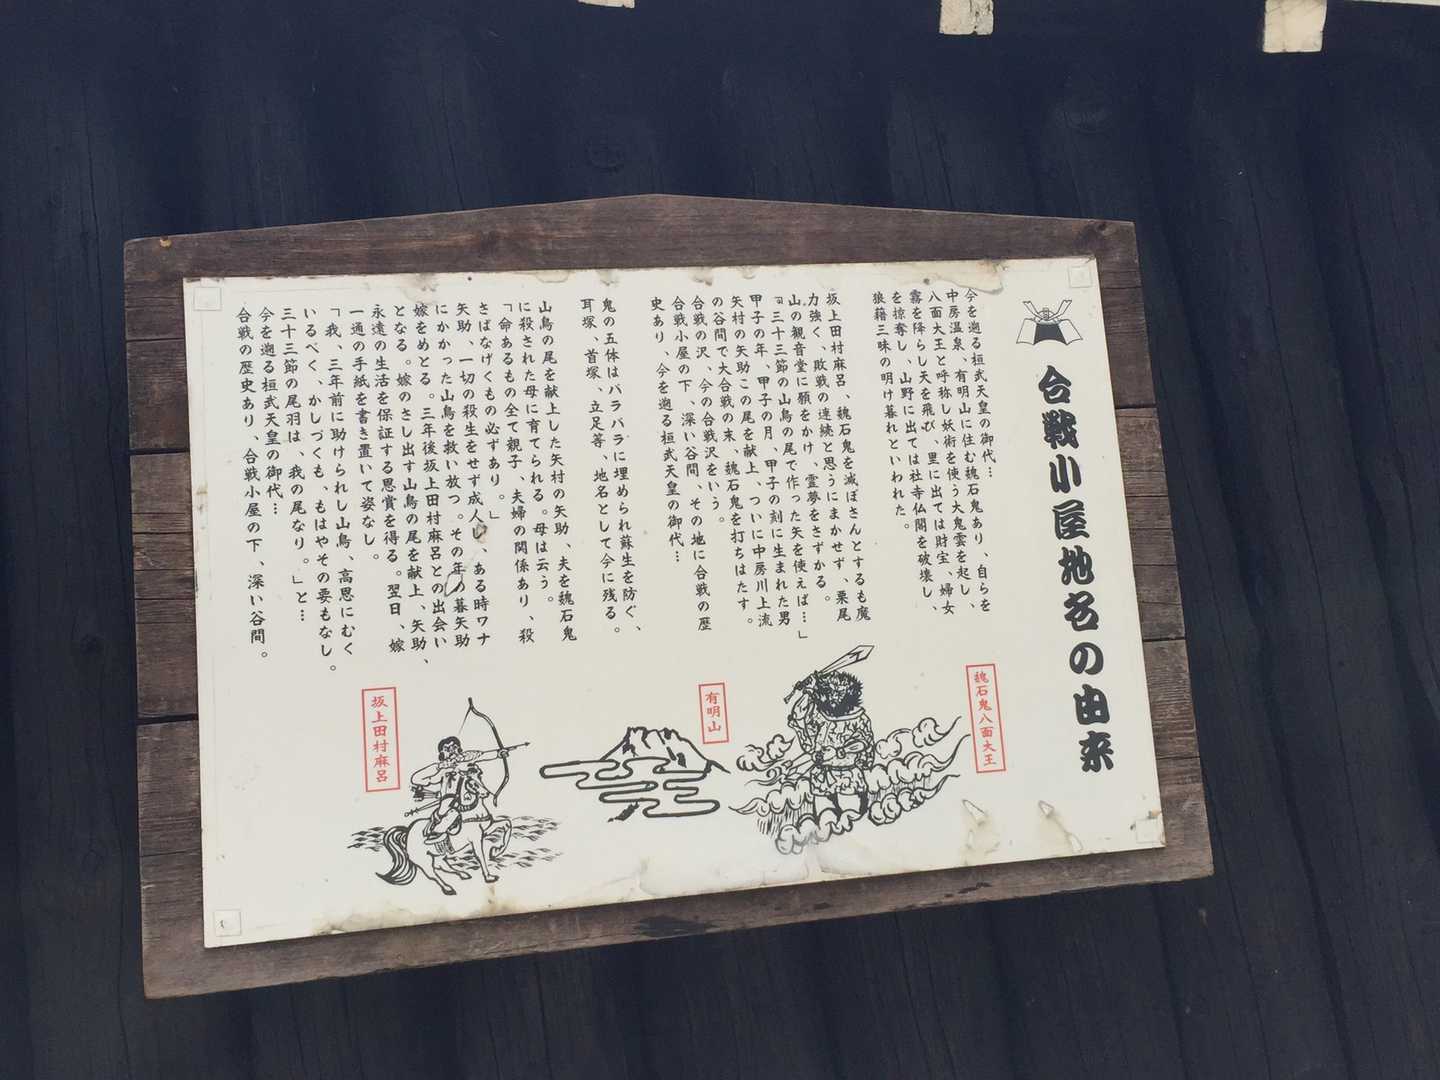 合戦小屋地名の由来
今を遡る桓武天皇の御代…
中房温泉、有明山に住む魏石鬼あり、自らを
八面大王と呼称し妖術を使う大鬼雲を起し、
霧を降らし天を飛び、里に出ては財宝、婦女
を掠奪し、山野に出ては社寺仏閣を破壊し、
狼藉三昧の明け暮れといわれた。
坂上田村麻呂、魏石鬼を滅ぼさんとするも魔
力強く、敗戦の連続と思うにまかせず、栗尾
山の観音堂に願をかけ、霊夢をさずかる。
『三十三節の山鳥の尾で作った矢を使えば…」
甲子の年、甲子の月、甲子の刻に生まれた男
矢村の矢助この尾を献上、ついに中房川上流
の谷間で大合戦の末、魏石鬼を打ちはたす。
合戦の沢、今の合戦沢をいう。
合戦小屋の下、深い谷間、その地に合戦の歴
史あり、今を遡る桓武天皇の御代…
鬼の五体はバラバラに埋められ蘇生を防ぐ、
耳塚、首塚、立足等、地名として今に残る。
山鳥の尾を献上した矢村の矢助、夫を魏石鬼
に殺された母に育てられる。母は云う。
「命あるもの全て親子、夫婦の関係あり、殺
さばなげくもの必ずあり。」
矢助、一切の殺生をせず成人し、ある時ワナ
にかかった山鳥を救い放つ。その年の暮矢助
嫁をめとる。三年後坂上田村麻呂との出会い
となる。嫁のさし出す山鳥の尾を献上、矢助、
永遠の生活を保証する恩賞を得る。翌日、嫁
一通の手紙を書き置いて姿なし。
「我、三年前に助けられし山鳥、高恩にむく
いるべく、かしづくも、もはやその要もなし。
三十三節の尾羽は、我の尾なり。」と…
今を遡る桓武天皇の御代…
合戦の歴史あり、合戦小屋の下、深い谷間。
魏石鬼八面大王
有明山
坂上田村麻呂